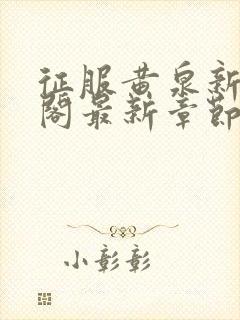 征服黄泉新
阁最新章节
小彰彰